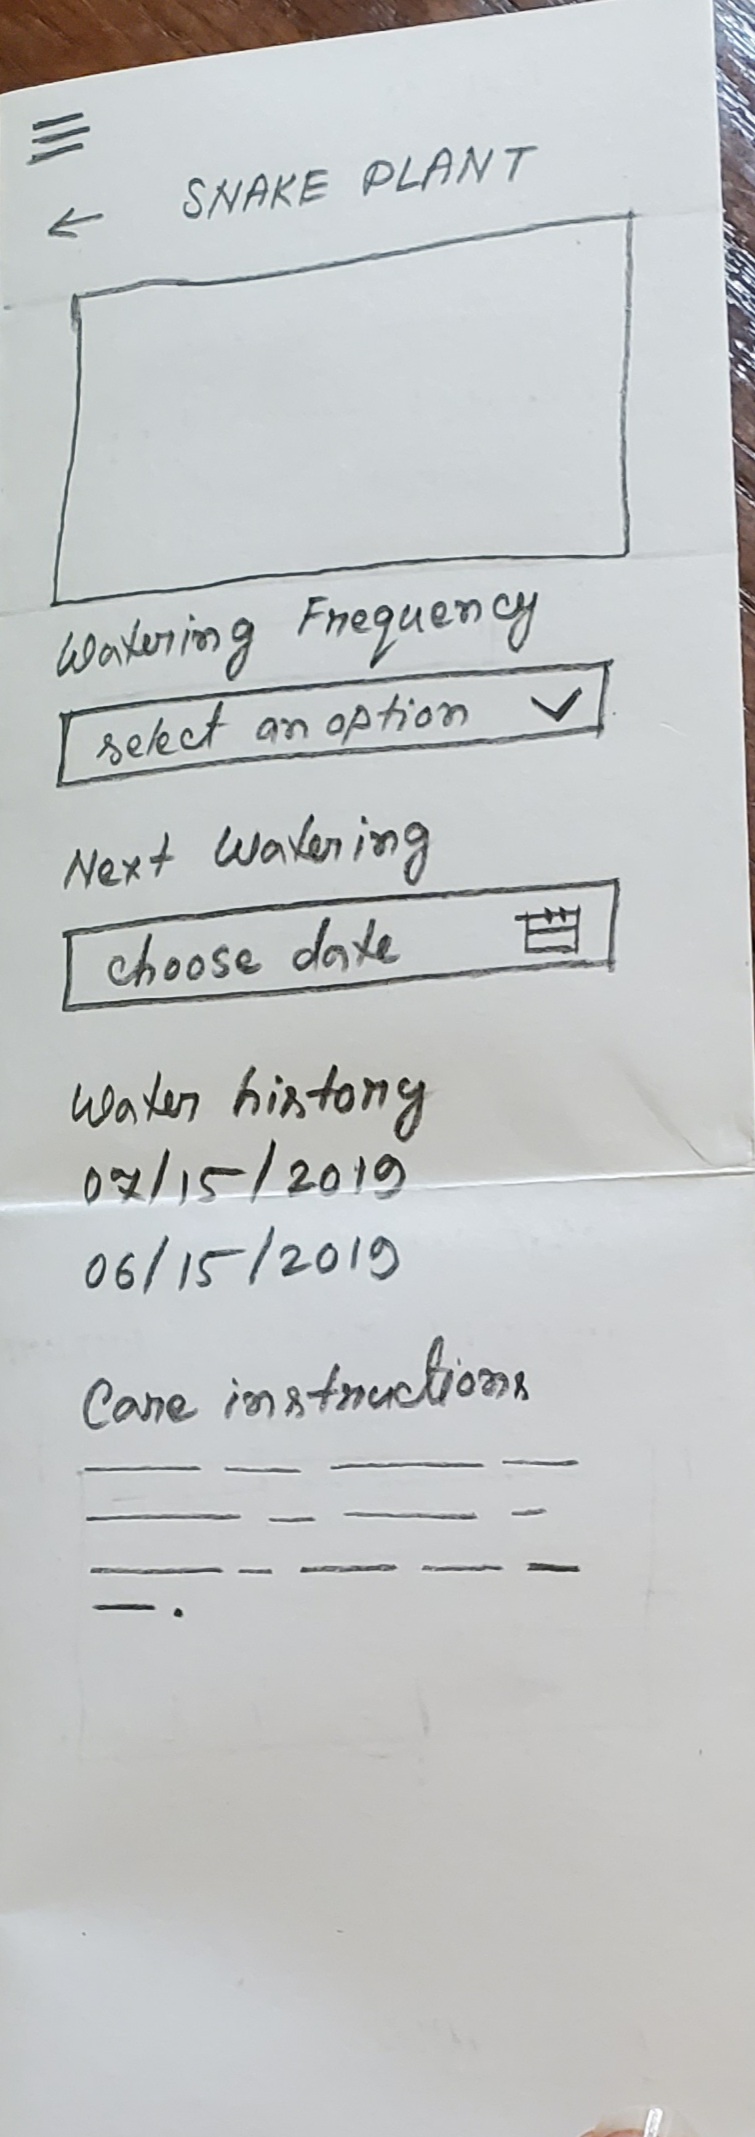 SNAKE PLANT
Watering Frequency
select an option
Next Watering
choose date
Water history
07/15/2019
06/15/2019
Care instructions